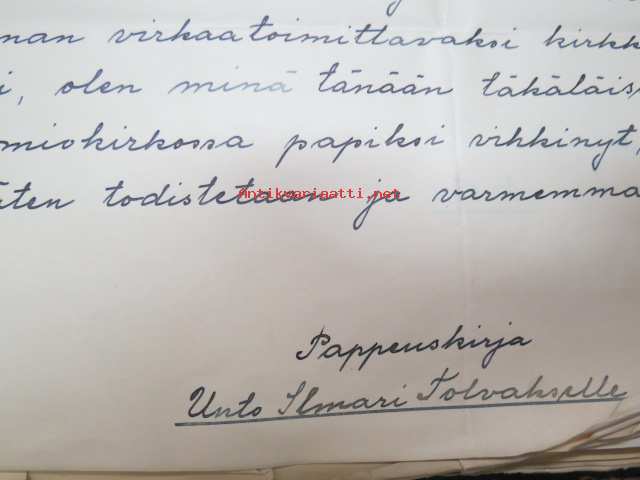 nan virkaatoimittavaksi kirkk
i, olen minä tänään täkäläis
miokirkossa papiksi vihkinyt,
äten todistetaan ja varmemma
Antikvariaatti.net
Pappeuskirja
Unto Ilmari Tolvakselle